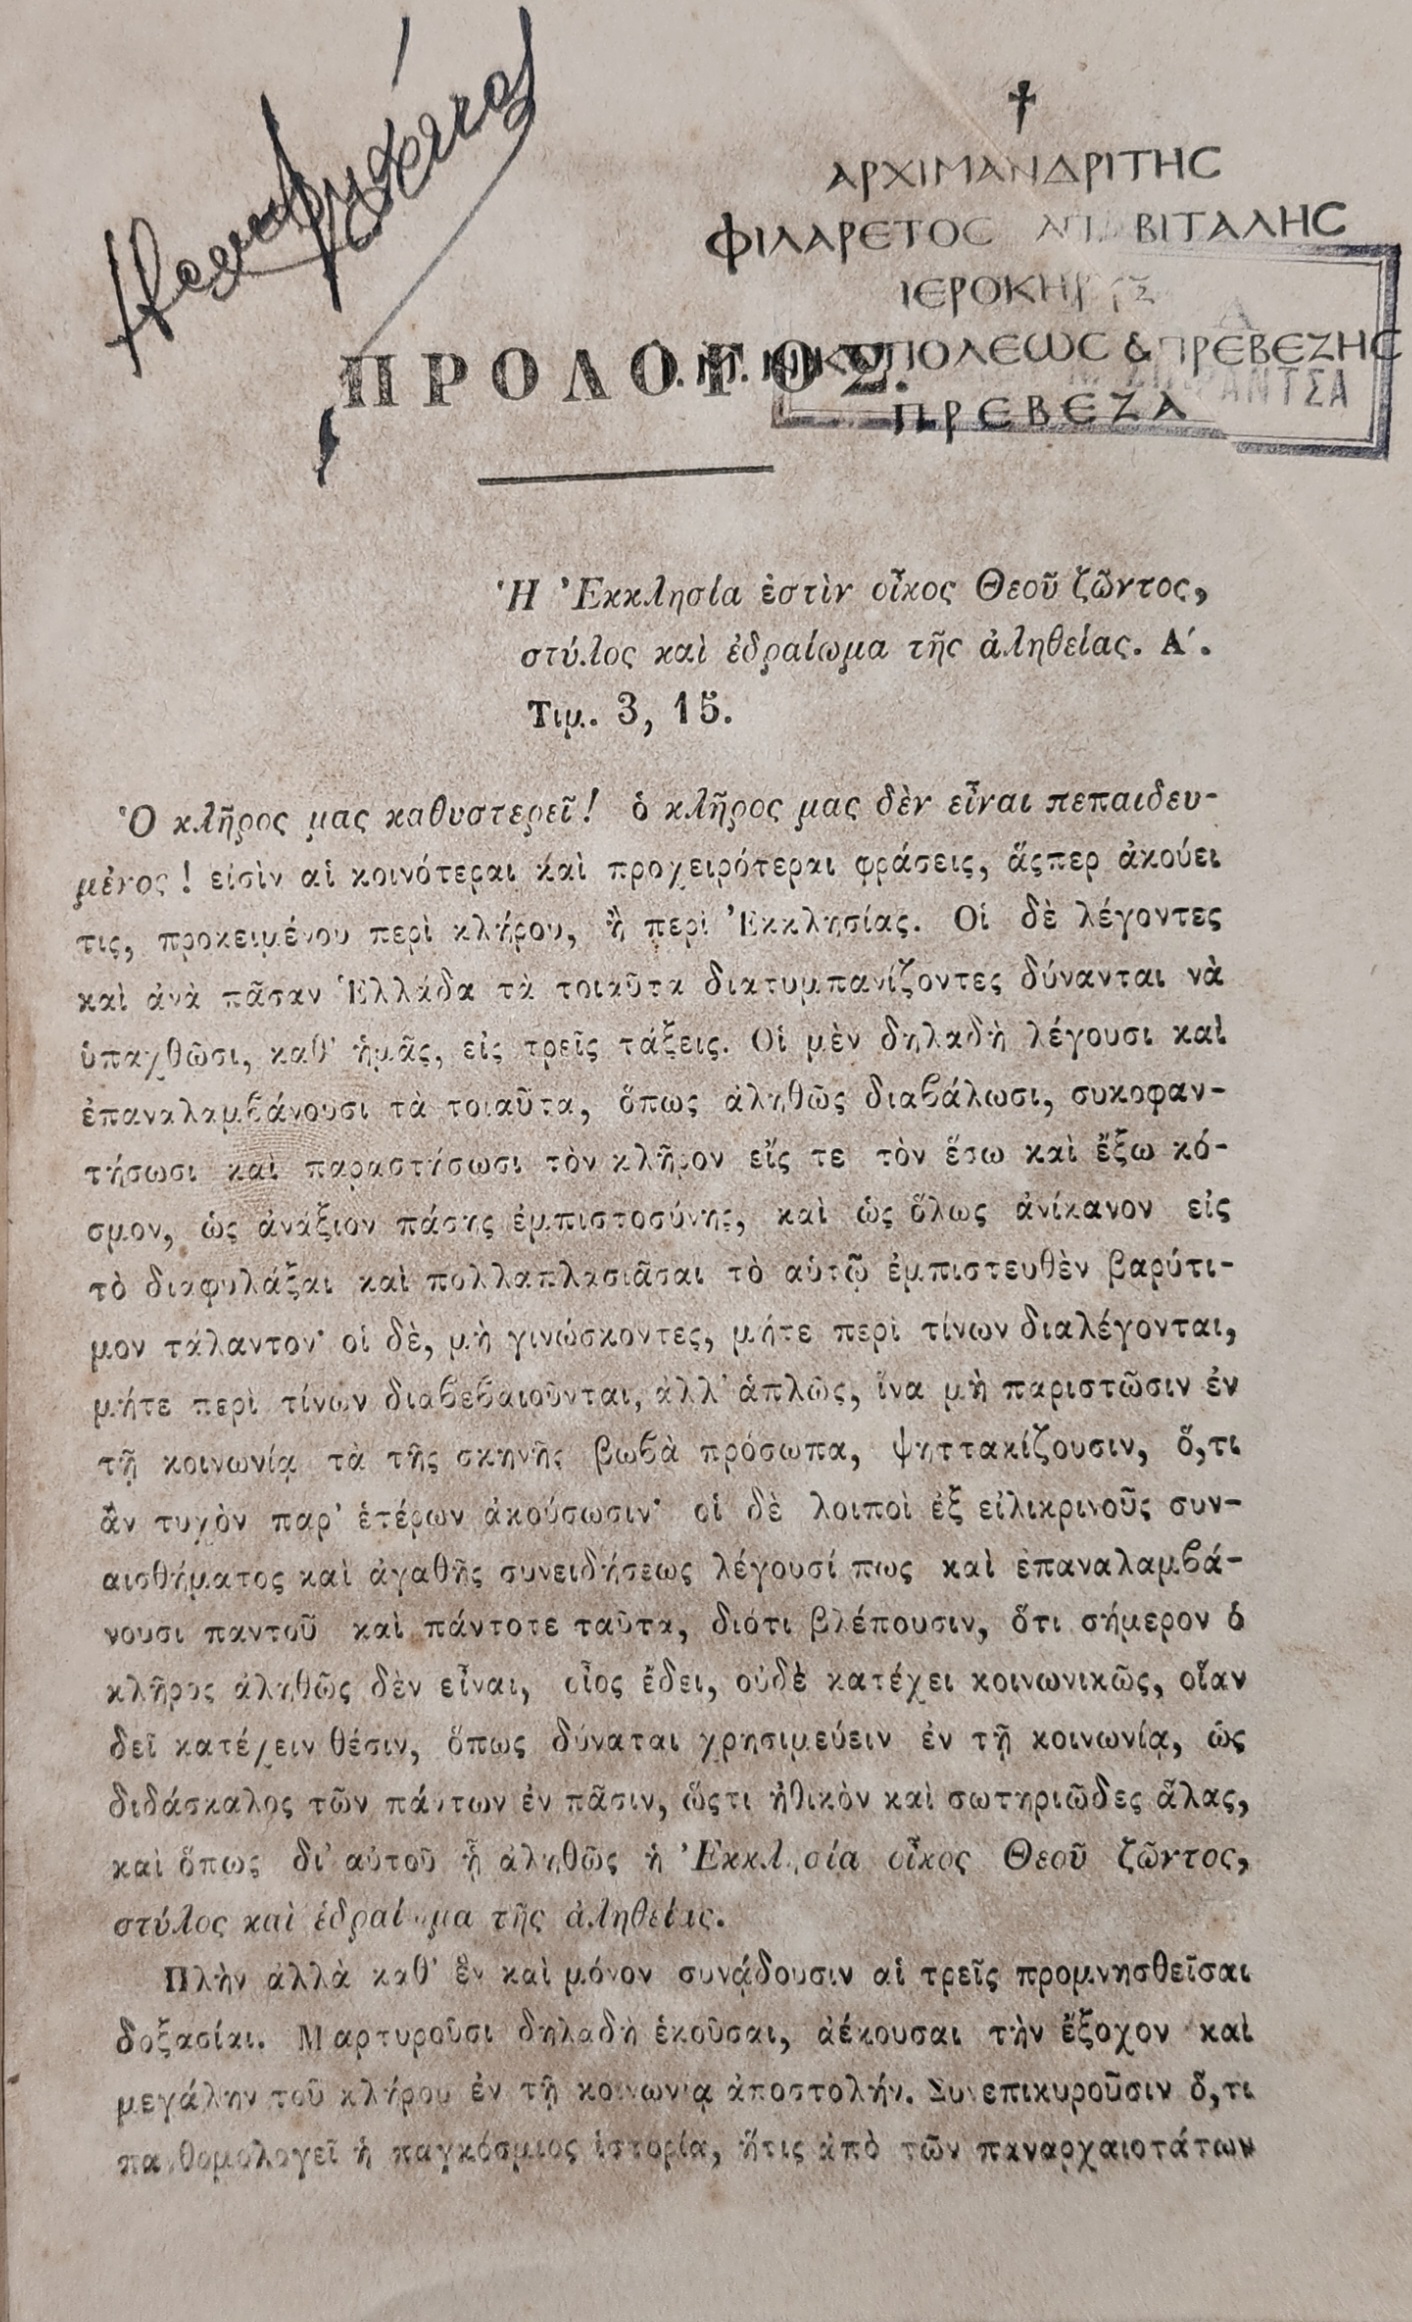 †
ΑΡΧΙΜΑΝΔΡΙΤΗΣ
ΦΙΛΑΡΕΤΟΣ ΑΠ. ΒΙΤΑΛΗΣ
ΙΕΡΟΚΗΡΥΞ
Ι. Μ. ΝΙΚΟΠΟΛΕΩΣ & ΠΡΕΒΕΖΗΣ
ΠΡΕΒΕΖΑ
ΠΡΟΛΟΓΟΣ.
Ἡ Ἐκκλησία ἐστὶν οἶκος Θεοῦ ζῶντος,
στύλος καὶ ἑδραίωμα τῆς ἀληθείας. Α΄.
Τιμ. 3, 15.
Ὁ κλῆρος μας καθυστερεῖ! ὁ κλῆρος μας δὲν εἶναι πεπαιδευ-
μένος! εἰσὶν αἱ κοινότεραι καὶ προχειρότεραι φράσεις, ἅςπερ ἀκούει
τις, προκειμένου περὶ κλήρου, ἢ περὶ Ἐκκλησίας. Οἱ δὲ λέγοντες
καὶ ἀνὰ πᾶσαν Ἑλλάδα τὰ τοιαῦτα διατυμπανίζοντες δύνανται νὰ
ὑπαχθῶσι, καθ' ἡμᾶς, εἰς τρεῖς τάξεις. Οἱ μὲν δηλαδὴ λέγουσι καὶ
ἐπαναλαμβάνουσι τὰ τοιαῦτα, ὅπως ἀληθῶς διαβάλωσι, συκοφαν-
τήσωσι καὶ παραστήσωσι τὸν κλῆρον εἴς τε τὸν ἔσω καὶ ἔξω κό-
σμον, ὡς ἀνάξιον πάσης ἐμπιστοσύνης, καὶ ὡς ὅλως ἀνίκανον εἰς
τὸ διαφυλάξαι καὶ πολλαπλασιᾶσαι τὸ αὑτῷ ἐμπιστευθὲν βαρύτι-
μον τάλαντον· οἱ δὲ, μὴ γινώσκοντες, μήτε περὶ τίνων διαλέγονται,
μήτε περὶ τίνων διαβεβαιοῦνται, ἀλλ' ἁπλῶς, ἵνα μὴ παριστῶσιν ἐν
τῇ κοινωνίᾳ τὰ τῆς σκηνῆς βωβὰ πρόσωπα, ψηττακίζουσιν, ὅ,τι
ἂν τυχὸν παρ' ἑτέρων ἀκούσωσιν· οἱ δὲ λοιποὶ ἐξ εἰλικρινοῦς συν-
αισθήματος καὶ ἀγαθῆς συνειδήσεως λέγουσί πως καὶ ἐπαναλαμβά-
νουσι παντοῦ καὶ πάντοτε ταῦτα, διότι βλέπουσιν, ὅτι σήμερον ὁ
κλῆρος ἀληθῶς δὲν εἶναι, οἷος ἔδει, οὐδὲ κατέχει κοινωνικῶς, οἵαν
δεῖ κατέχειν θέσιν, ὅπως δύναται χρησιμεύειν ἐν τῇ κοινωνίᾳ, ὡς
διδάσκαλος τῶν πάντων ἐν πᾶσιν, ὥςτι ἠθικὸν καὶ σωτηριῶδες ἅλας,
καὶ ὅπως δι' αὐτοῦ ᾖ ἀληθῶς ἡ Ἐκκλησία οἶκος Θεοῦ ζῶντος,
στύλος καὶ ἑδραίωμα τῆς ἀληθείας.
Πλὴν ἀλλὰ καθ' ἓν καὶ μόνον συνᾴδουσιν αἱ τρεῖς προμνησθεῖσαι
δοξασίαι. Μαρτυροῦσι δηλαδὴ ἑκοῦσαι, ἀέκουσαι τὴν ἔξοχον καὶ
μεγάλην τοῦ κλήρου ἐν τῇ κοινωνίᾳ ἀποστολήν. Συνεπικυροῦσιν ὅ,τι
πανθομολογεῖ ἡ παγκόσμιος ἱστορία, ἥτις ἀπὸ τῶν παναρχαιοτάτων